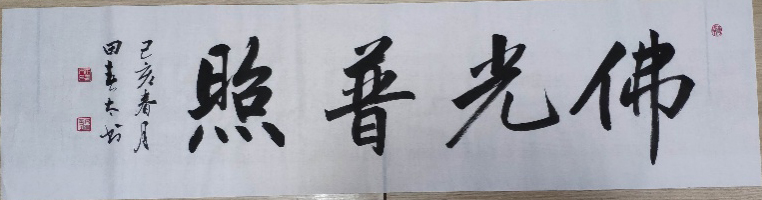 佛光普照
己亥春月
田春太书